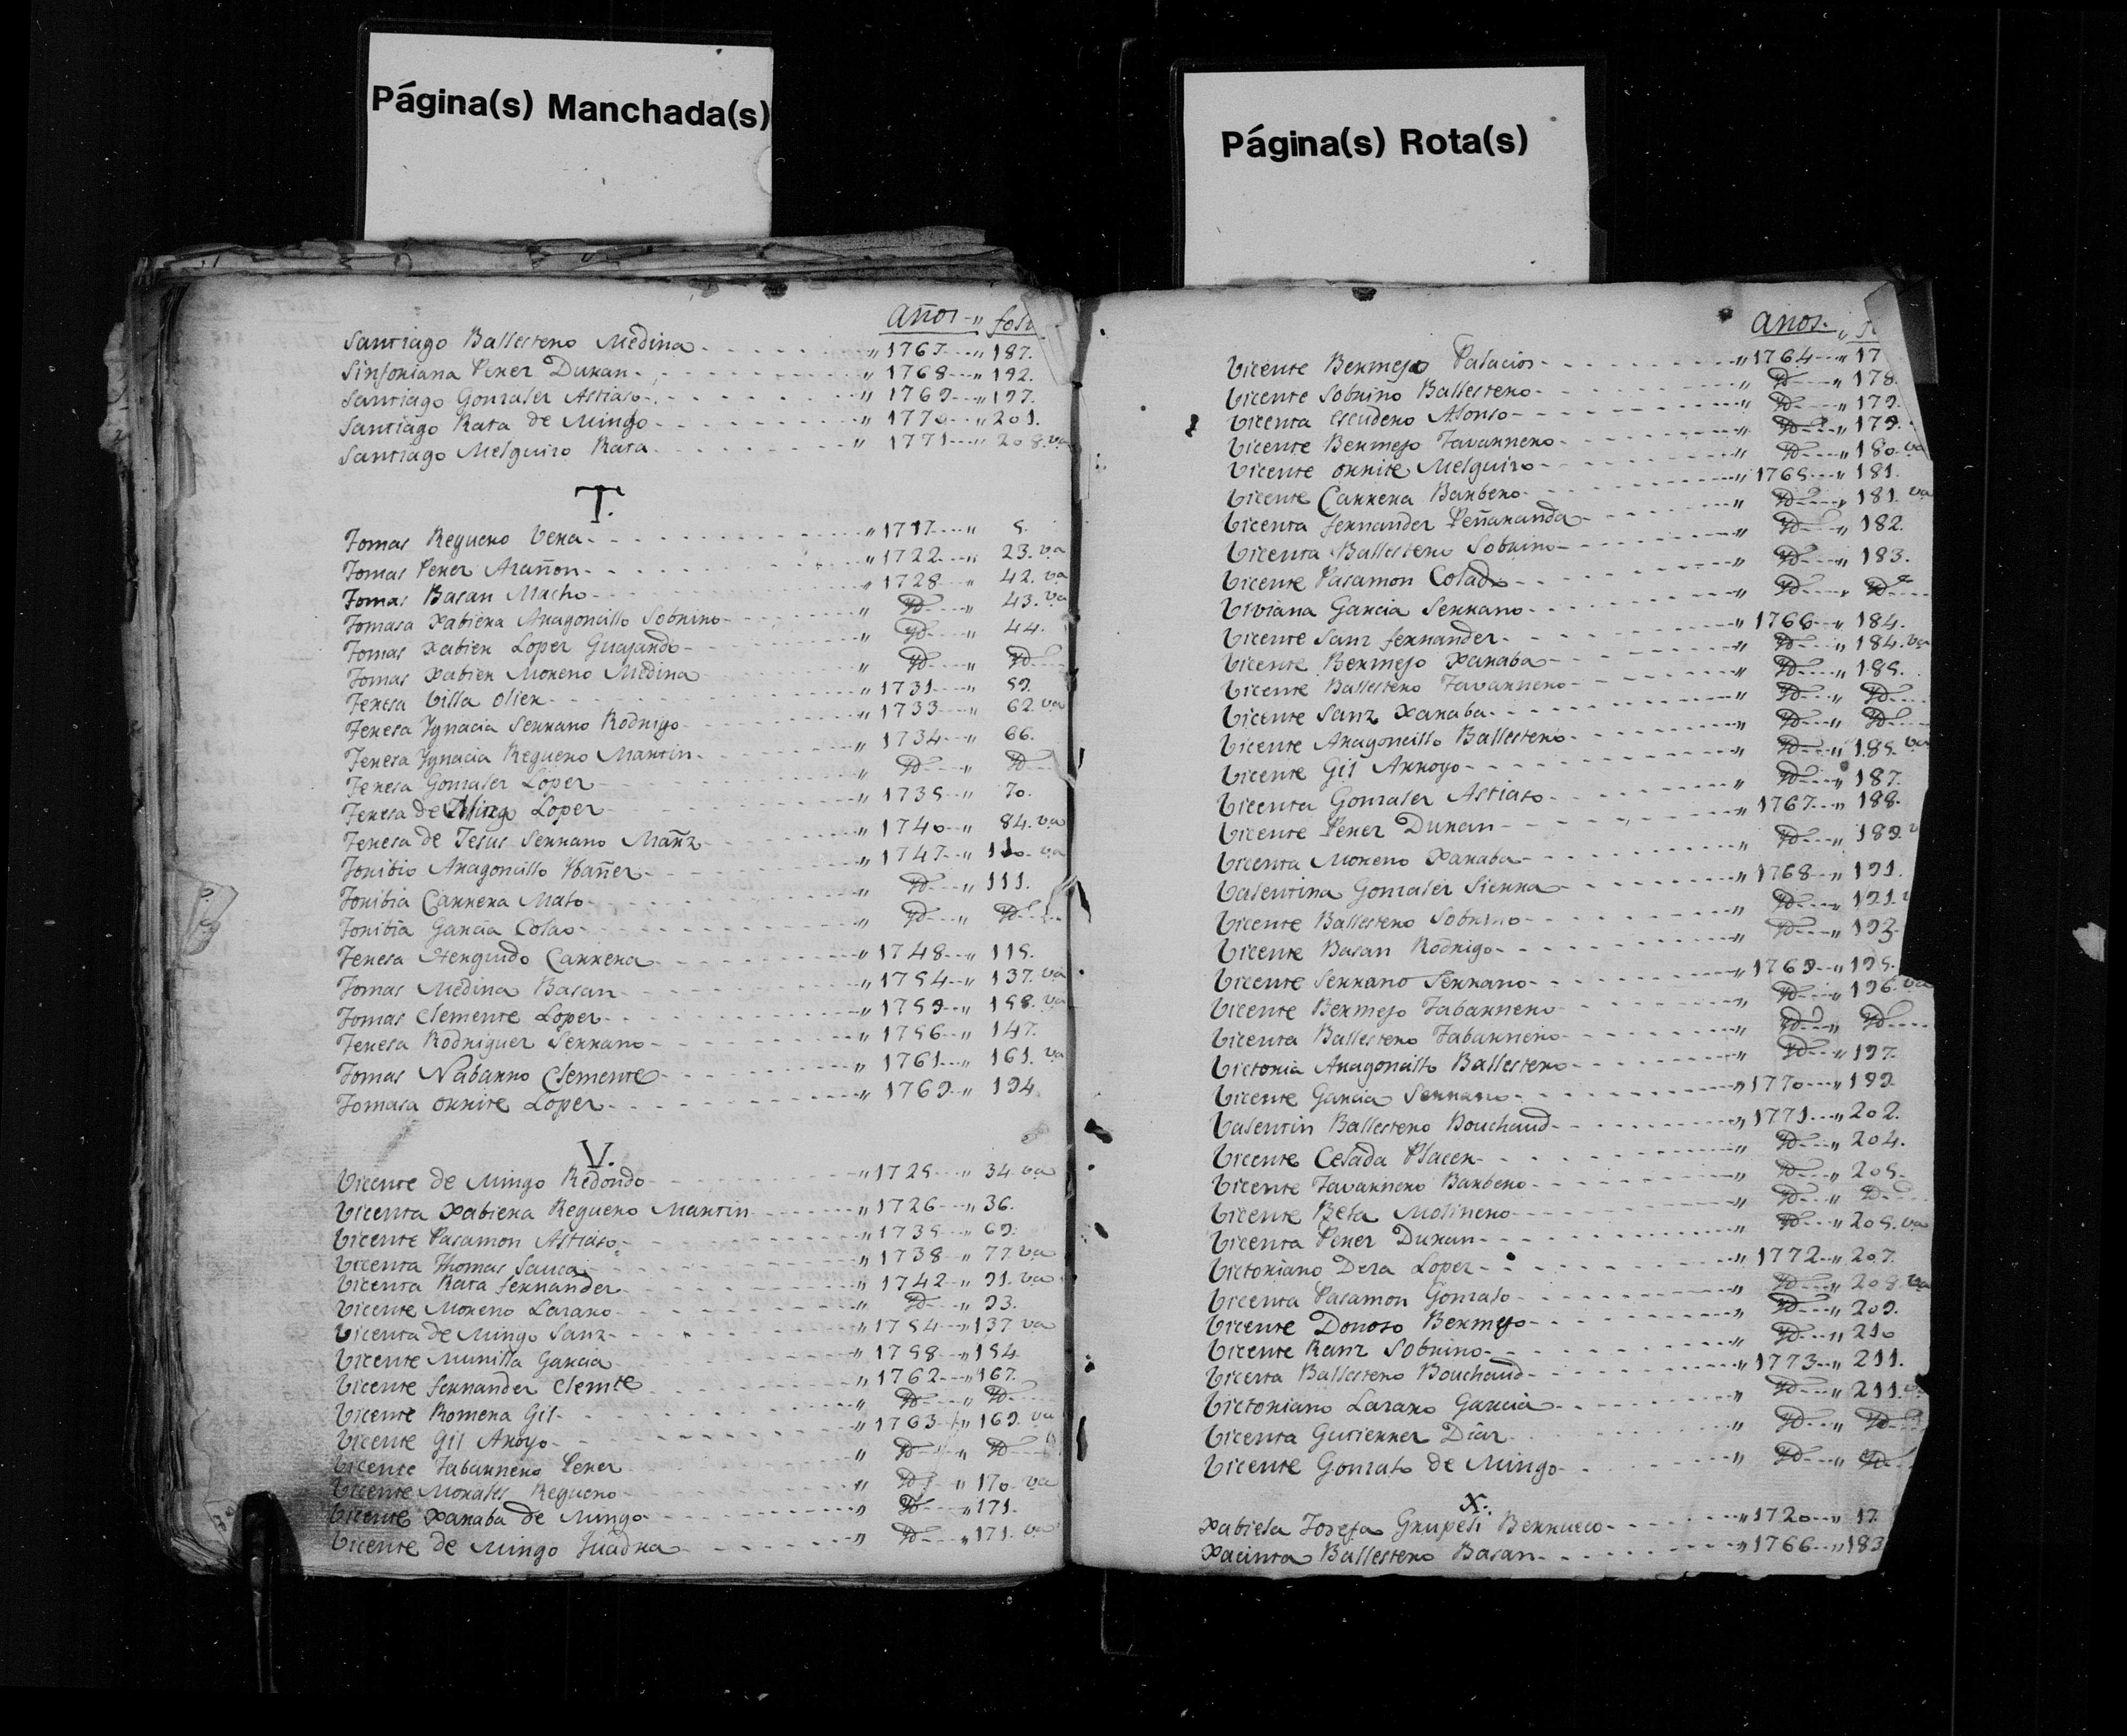 Página(s) Manchada(s)
Página(s) Rota(s)
años " fol
Santiago Ballestero Medina " 1767 " 187.
Sinforiana Perez Duran " 1768 " 192.
Santiago Gonzalez Astiaso " 1769 " 197.
Santiago Rata de Mingo " 1770 " 201.
Santiago Melguizo Rata " 1771 " 208. va
T.
Tomas Reguero Vera " 1717 " 5.
Tomas Perez Arañon " 1722 " 23. va
Tomas Basan Macho " 1728 " 42. va
Tomasa Xabiera Aragoncillo Sobrino " Yd " 43. va
Tomas Xabier Lopez Guajardo " Yd " 44.
Tomas Xabier Moreno Medina " Yd " Yd
Teresa Villa Olier " 1731 " 59.
Teresa Ygnacia Serrano Rodrigo " 1733 " 62. va
Teresa Ygnacia Reguero Martin " 1734 " 66.
Teresa Gonzalez Lopez " Yd " Yd
Teresa de Mingo Lopez " 1735 " 70.
Teresa de Jesus Serrano Mañz " 1740 " 84. va
Toribio Aragoncillo Ybañez " 1747 " 110. va
Toribia Carrera Malo " Yd " 111.
Toribia Garcia Colas " Yd " Yd
Teresa Henguido Carrera " 1748 " 115.
Tomas Medina Basan " 1754 " 137. va
Tomas Clemente Lopez " 1759 " 158. va
Teresa Rodriguez Serrano " 1756 " 147.
Tomas Nabarro Clemente " 1761 " 161. va
Tomasa Orrite Lopez " 1769 " 194
V.
Vicente de Mingo Redondo " 1725 " 34. va
Vicenta Xabiera Reguero Martin " 1726 " 36.
Vicente Pasamon Astiaso " 1735 " 69.
Vicenta Thomas Sauca " 1738 " 77 va
Vicenta Rata Fernandez " 1742 " 91. va
Vicente Moreno Lazaro " Yd " 93.
Vicenta de Mingo Sanz " 1754 " 137 va
Vicente Munilla Garcia " 1758 " 154
Vicente Fernandez Clemte " 1762 " 167.
Vicente Romera Gil " Yd " Yd
Vicente Gil Aroyo " 1763 " 169. va
Vicente Tabarnero Perez " Yd " Yd
Vicente Morales Reguero " Yd " 170. va
Vicente Xaraba de Mingo " Yd " 171.
Vicente de Mingo Juadra " Yd " 171. va
años. "
Vicente Bermejo Palacios " 1764 " 17
Vicente Sobrino Ballestero " Yd " 178.
Vicenta Escudero Alonso " Yd " 179.
Vicente Bermejo Tavarnero " Yd " 179.
Vicente Orrite Melguizo " Yd " 180. va
Vicente Carrera Barbero " 1765 " 181.
Vicenta Fernandez Peñaranda " Yd " 181. va
Vicenta Ballestero Sobrino " Yd " 182.
Vicente Pasamon Colado " Yd " 183.
Viviana Garcia Serrano " Yd " Yd
Vicente Sanz Fernandez " 1766 " 184.
Vicente Bermejo Xaraba " Yd " 184. va
Vicente Ballestero Tavarnero " Yd " 185.
Vicente Sanz Xaraba " Yd " Yd
Vicente Aragoncillo Ballestero " Yd " Yd
Vicente Gil Arroyo " Yd " 185. va
Vicenta Gonzalez Astiaso " Yd " 187.
Vicente Perez Duran " 1767 " 188.
Vicenta Moreno Xaraba " Yd " 189. v
Valentina Gonzalez Sierra " 1768 " 191.
Vicente Ballestero Sobrino " Yd " 191.
Vicente Basan Rodrigo " Yd " 193.
Vicente Serrano Serrano " 1769 " 195.
Vicente Bermejo Tabarnero " Yd " 196. va
Vicenta Ballestero Tabarnero " Yd " Yd
Victoria Aragoncillo Ballestero " Yd " 197.
Vicente Garcia Serrano " 1770 " 199.
Valentin Ballestero Bouchaud " 1771 " 202.
Vicente Celada Placer " Yd " 204.
Vicente Tavarnero Barbero " Yd " 205.
Vicente Bela Molinero " Yd " Yd
Vicenta Perez Duran " Yd " 205. va
Victoriano Deza Lopez " 1772 " 207.
Vicenta Pasamon Gonzalo " Yd " 208. va
Vicente Donoso Bermejo " Yd " 209.
Vicente Ranz Sobrino " Yd " 210
Vicenta Ballestero Bouchaud " 1773 " 211.
Victoriano Lazaro Garcia " Yd " 211.
Vicenta Gutierrez Diaz " Yd " Yd
Vicente Gonzalo de Mingo " Yd " Yd
X.
Xabiela Josefa Grupeli Berrueco " 1720 " 17.
Xacinta Ballestero Basan " 1766 " 183